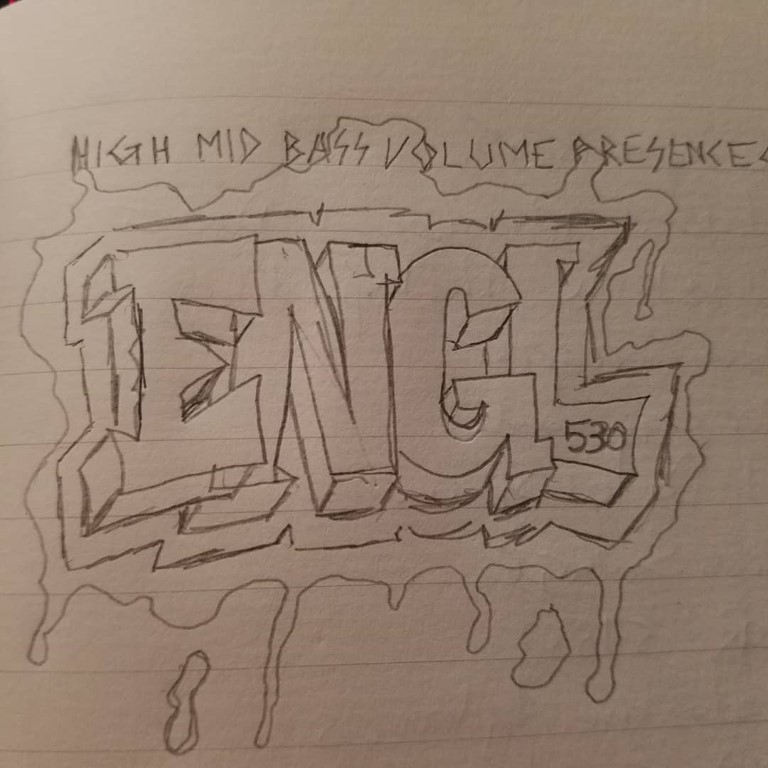 HIGH MID BASS VOLUME PRESENCE
ENGL
530